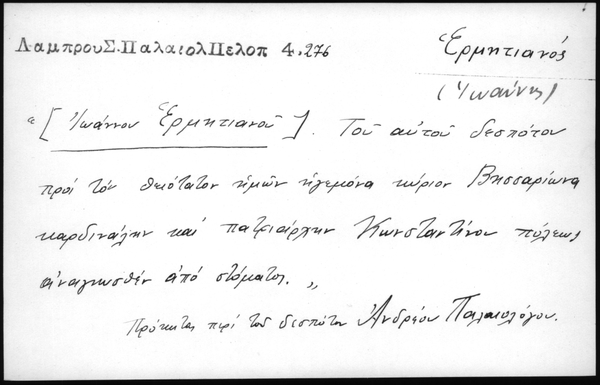 ΛαμπρουΣ.ΠαλαιολΠελοπ 4.276
Ἑρμητιανός
(Ἰωάννης)
"[Ἰωάννου Ἑρμητιανοῦ]. Τοῦ αὐτοῦ δεσπότου
πρός τόν θειότατον ἡμῶν ἡγεμόνα κύριον Βησσαρίωνα
καρδινάλην καί πατριάρχην Κωνσταντίνου πόλεως
ἀναγνωσθέν ἀπό στόματος."
Πρόκειται περί τοῦ δεσπότου Ἀνδρέου Παλαιολόγου.